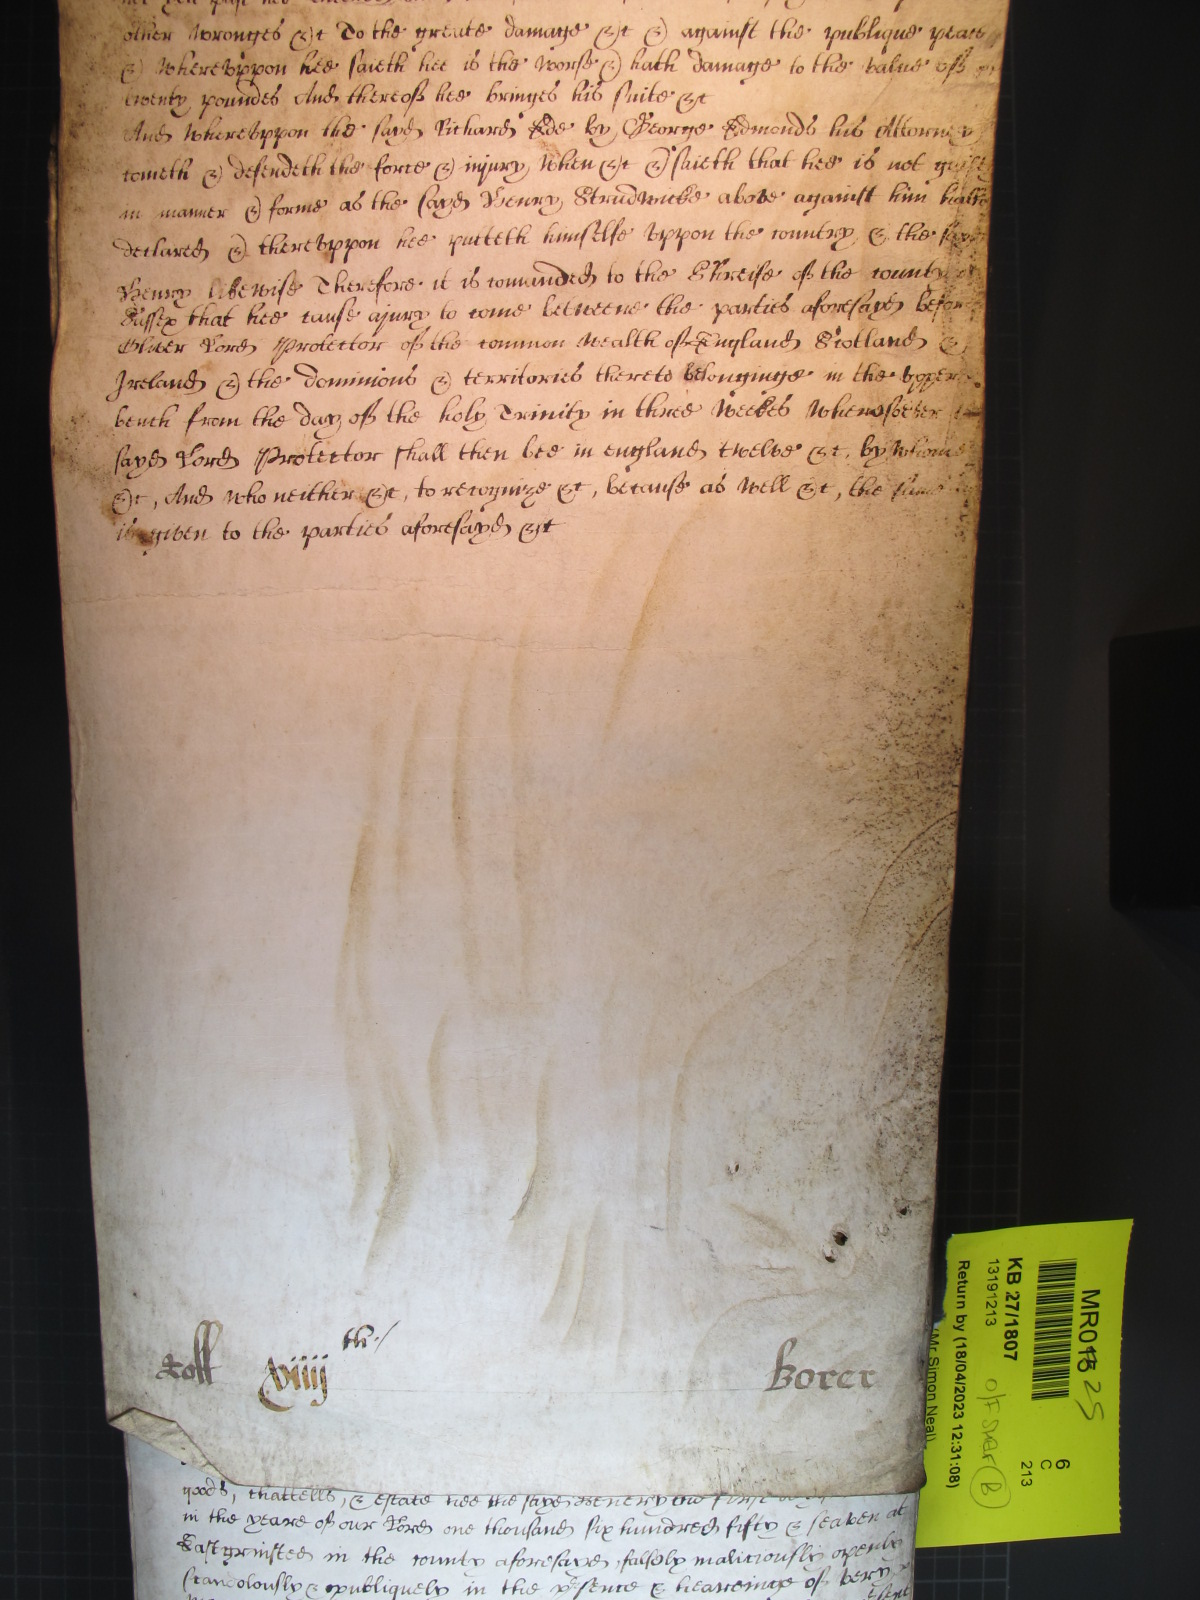 other wronges &c To the greate damage &c & against the publique peace
& whereuppon hee saieth hee is the worse & hath damage to the value off
twenty poundes And thereoff hee bringes his suite &c
And whereuppon the sayd Richard Ede by George Edmonds his Attorney
cometh & defendeth the force & injury when &c & saieth that hee is not guilty
in manner & forme as the sayd Henry Strudwicke above against him hath
declared & thereuppon hee putteth himselfe uppon the country & the sayd
Henry likewise Therefore it is comanded to the Shreife off the county of
Sussex that hee cause a jury to come betweene the parties aforesayd before
Oliver Lord Protector off the common wealth off England Scotland &
Ireland & the dominions & territories thereto belonginge in the upper
bench from the day off the holy Trinity in three weekes wheresoever the
sayd Lord Protector shall then bee in england twelve &c, by whome
&c, And who neither &c, to recognize &c, because as well &c, the same
is given to the parties aforesayd &c
Roll xviiij th
Borer
goods, chattells, & estate hee the sayd Henry the first
in the yeare off our Lord one thousand six hundred fifty & seaven at
Eastgrinsted in the county aforesayd, falsely maliciously openly
scandolously & publiquely in the presence & heareinge off very
MR018 25
KB 27/1807
13191213
Return by (18/04/2023 12:31:08)
(Mr Simon Neal)
6
C
213
B